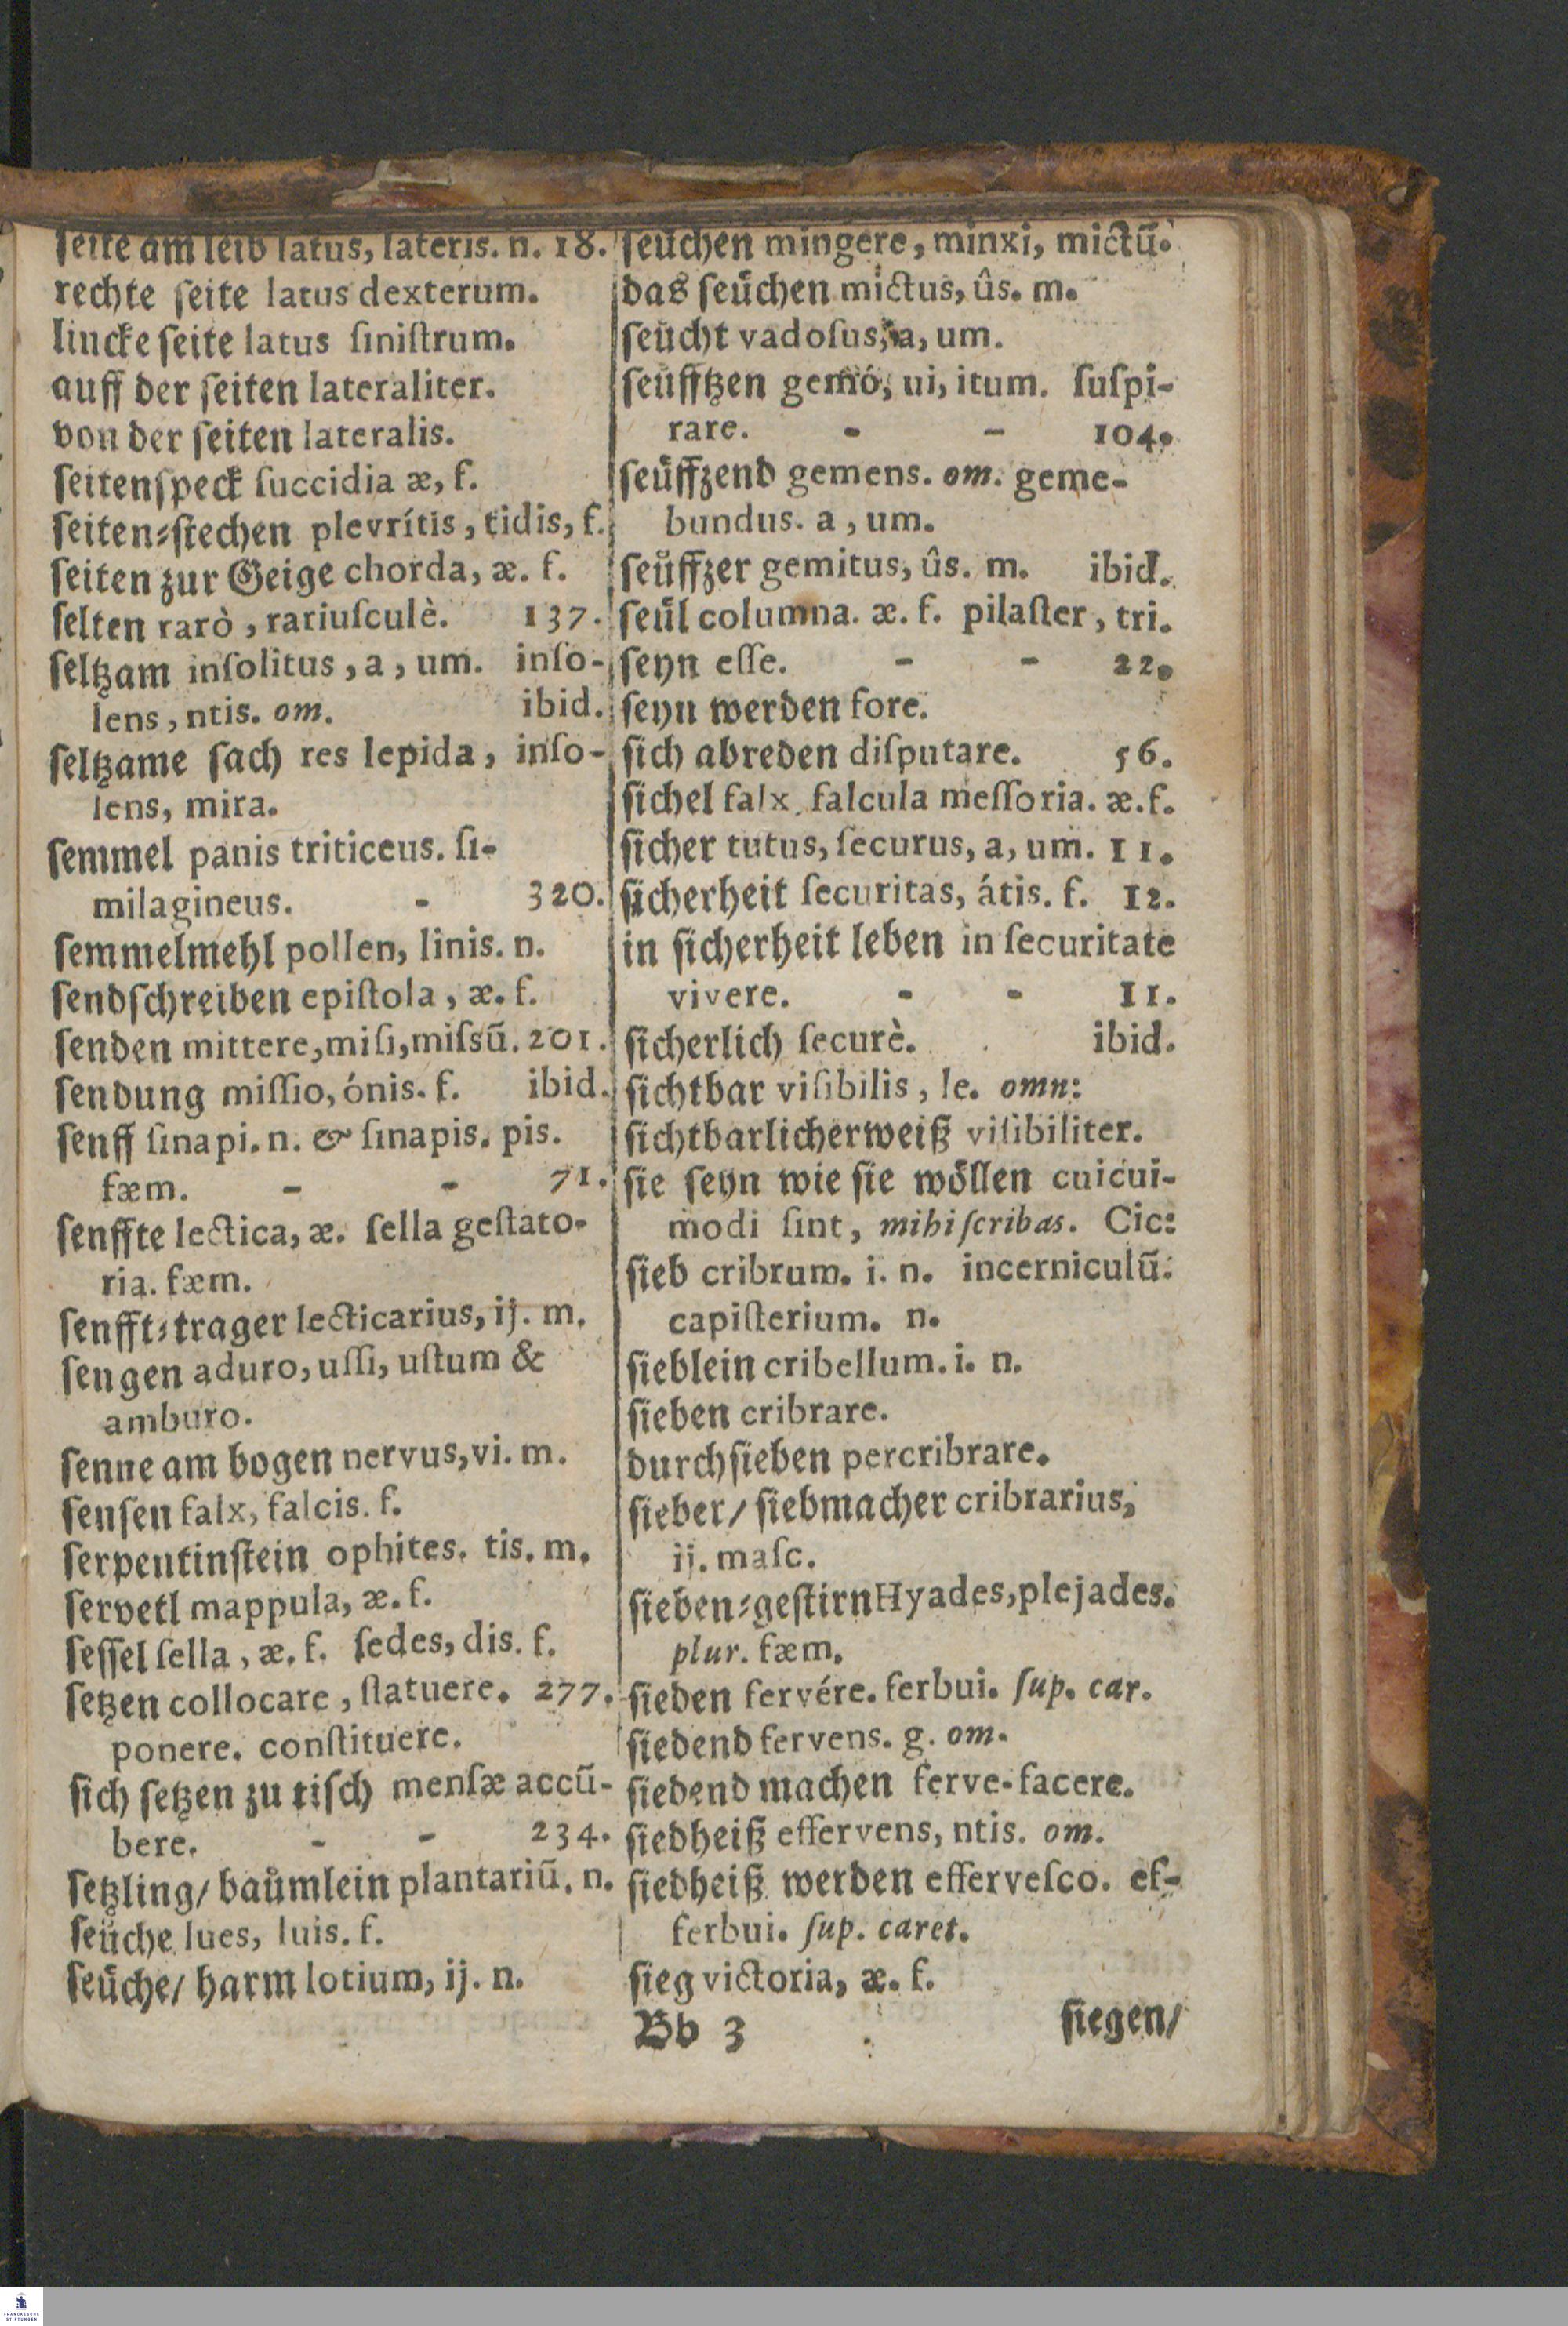 ſeite am leib latus, lateris. n. 18.
rechte ſeite latus dexterum.
lincke ſeite latus ſiniſtrum.
auff der ſeiten lateraliter.
von der ſeiten lateralis.
ſeitenſpeck ſuccidia æ, f.
ſeiten⸗ſtechen plevrítis, tidis, f.
ſeiten zur Geige chorda, æ. f.
ſelten rarò, rariuſculè. 137.
ſeltzam inſolitus, a, um. inſo-
lens, ntis. om. ibid.
ſeltzame ſach res lepida, inſo-
lens, mira.
ſemmel panis triticeus. ſi-
milagineus. - 320.
ſemmelmehl pollen, linis. n.
ſendſchreiben epiſtola, æ. f.
ſenden mittere, miſi, miſsū. 201.
ſendung miſſio, ónis. f. ibid.
ſenff ſinapi. n. & ſinapis. pis.
fæm. - - 71.
ſenffte lectica, æ. ſella geſtato-
ria. fæm.
ſenfft⸗trager lecticarius, ij. m.
ſengen aduro, uſſi, uſtum &
amburo.
ſenne am bogen nervus, vi. m.
ſenſen falx, falcis. f.
ſerpentinſtein ophites. tis. m.
ſervetl mappula, æ. f.
ſeſſel ſella, æ. f. ſedes, dis. f.
ſetzen collocare, ſtatuere. 277.
ponere. conſtituere.
ſich ſetzen zu tiſch menſæ accū-
bere. - - 234.
ſetzling/ baůmlein plantariū. n.
ſeůche lues, luis. f.
ſeůche/ harm lotium, ij. n.
ſeůchen mingere, minxi, mictū.
das ſeůchen mictus, ûs. m.
ſeůcht vadoſus, a, um.
ſeůfftzen gemo, ui, itum. ſuſpi-
rare. - - 104.
ſeůffzend gemens. om. geme-
bundus. a, um.
ſeůffzer gemitus, ûs. m. ibid.
ſeůl columna. æ. f. pilaſter, tri.
ſeyn eſſe. - - 22.
ſeyn werden fore.
ſich abreden diſputare. 56.
ſichel falx. falcula meſſoria. æ. f.
ſicher tutus, ſecurus, a, um. 11.
ſicherheit ſecuritas, átis. f. 12.
in ſicherheit leben in ſecuritate
vivere. - - 11.
ſicherlich ſecurè. ibid.
ſichtbar viſibilis, le. omn:
ſichtbarlicherweiß viſibiliter.
ſie ſeyn wie ſie wöllen cuicui-
modi ſint, mihi ſcribas. Cic:
ſieb cribrum. i. n. incerniculū.
capiſterium. n.
ſieblein cribellum. i. n.
ſieben cribrare.
durchſieben percribrare.
ſieber/ ſiebmacher cribrarius,
ij. maſc.
ſieben⸗geſtirn Hyades, plejades.
plur. fæm.
ſieden fervére. ferbui. ſup. car.
ſiedend fervens. g. om.
ſiedend machen ferve-facere.
ſiedheiß effervens, ntis. om.
ſiedheiß werden efferveſco. ef-
ferbui. ſup. caret.
ſieg victoria, æ. f.
Bb 3 ſiegen/
FRANCKESCHE
STIFTUNGEN